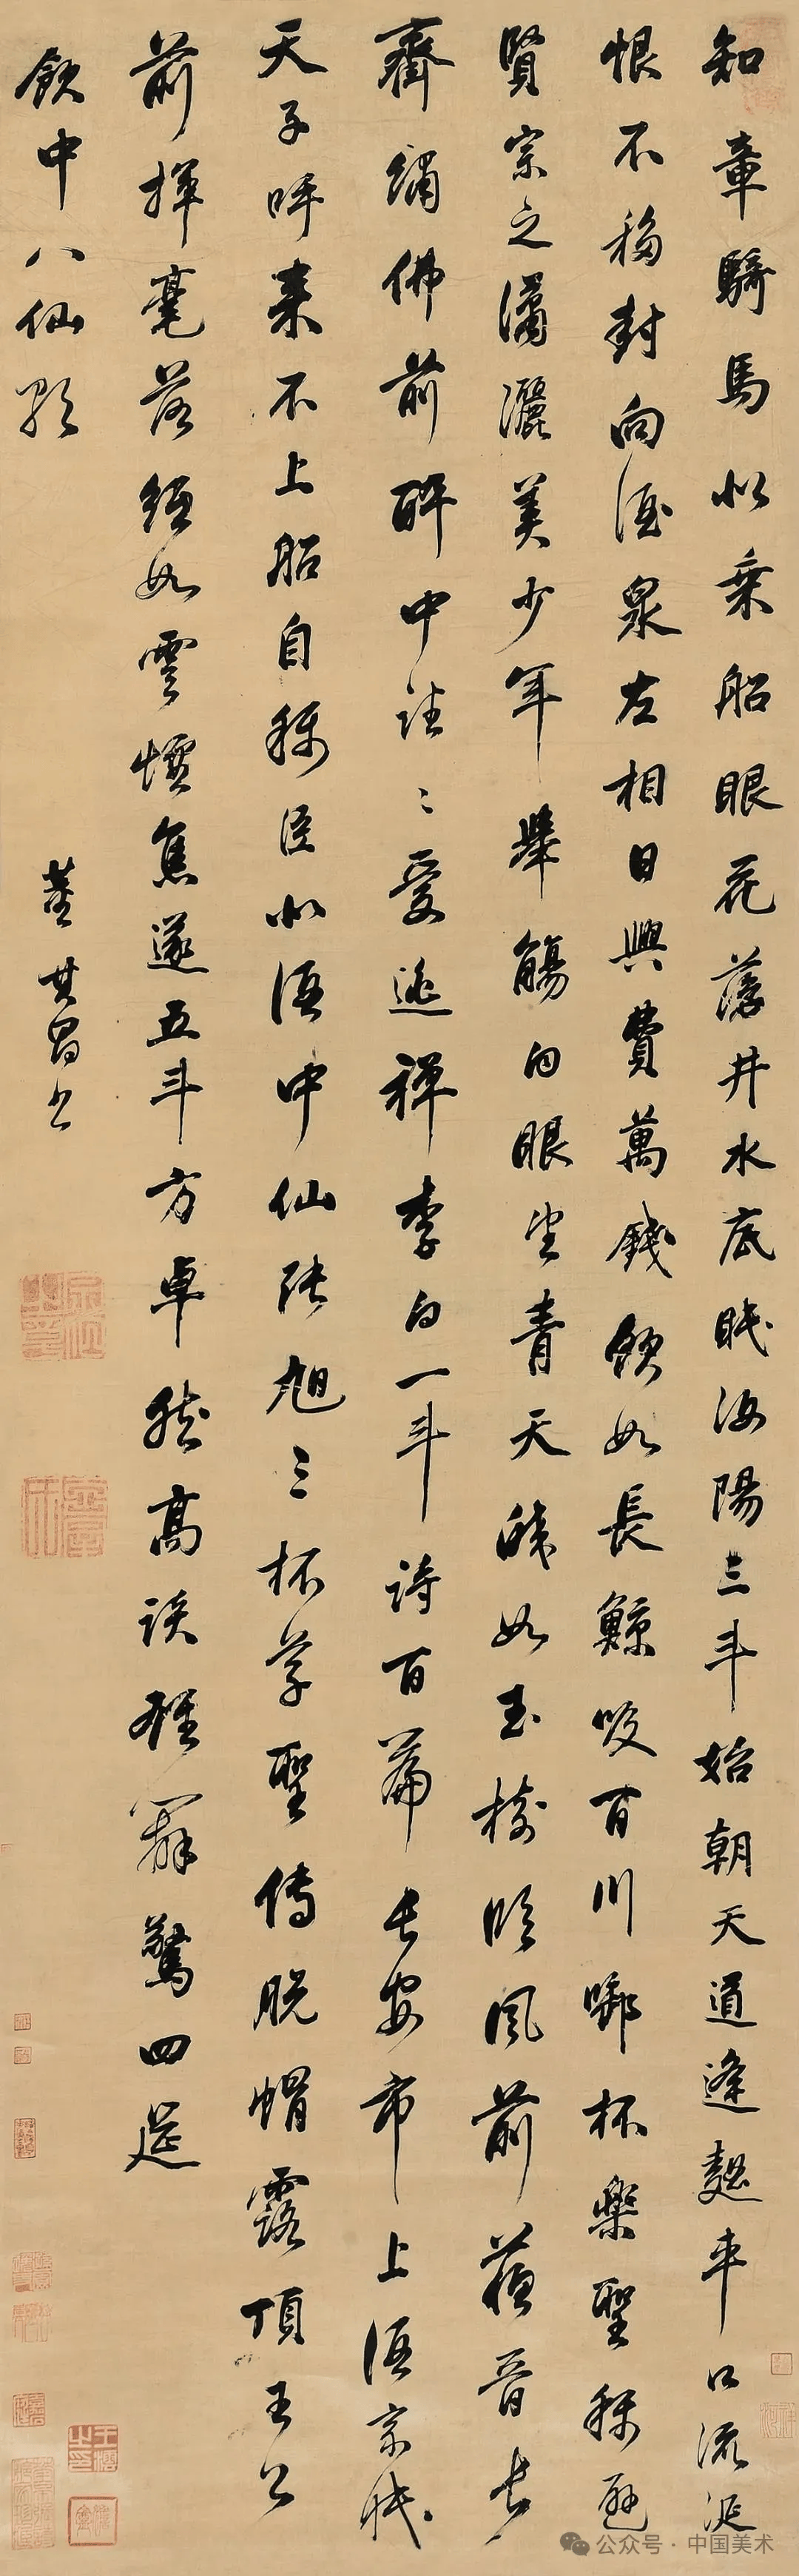 知章騎馬似乘船眼花落井水底眠汝陽三斗始朝天道逢麴車口流涎
恨不移封向酒泉左相日興費萬錢飲如長鯨吸百川啣杯樂聖稱避
賢宗之瀟灑美少年舉觴白眼望青天皎如玉樹臨風前蘇晉長
齋繡佛前醉中往〻愛逃禪李白一斗詩百篇長安市上酒家眠
天子呼來不上船自稱臣似酒中仙張旭三杯草聖傳脫帽露頂王公
前揮毫落紙如雲煙焦遂五斗方卓然高談雄辯驚四筵
飲中八仙歌
董其昌書
公众号·中国美术